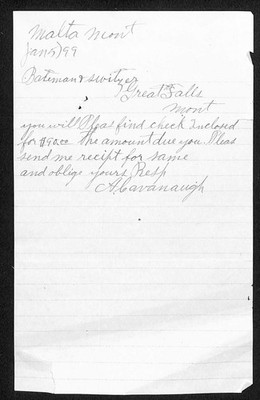 Malta Mont
Jan 5/99
Bateman & Switzer
Great Falls
Mont
you will Pleas find check Inclosed
for $90.00 the amount due you. Pleas
send me recipt for same
and oblige yours Resp
A Cavanaugh